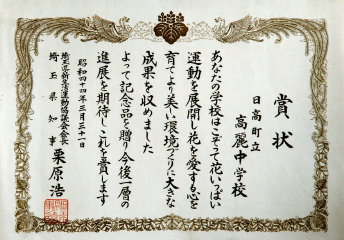 賞状
日高町立
高麗中学校
あなたの学校はこぞって花いっぱい
運動を展開し花を愛する心を
育てより美しい環境づくりに大きな
成果を収めました
よって記念品を贈り今後一層の
進展を期待しこれを賞します
昭和四十四年三月三十一日
埼玉県新生活運動協議会会長
埼玉県知事 栗原浩